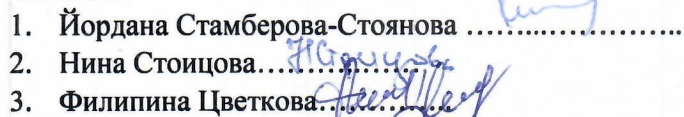 1. Йордана Стамберова-Стоянова ........................
2. Нина Стоицова...НСтоицова
3. Филипина Цветкова...............